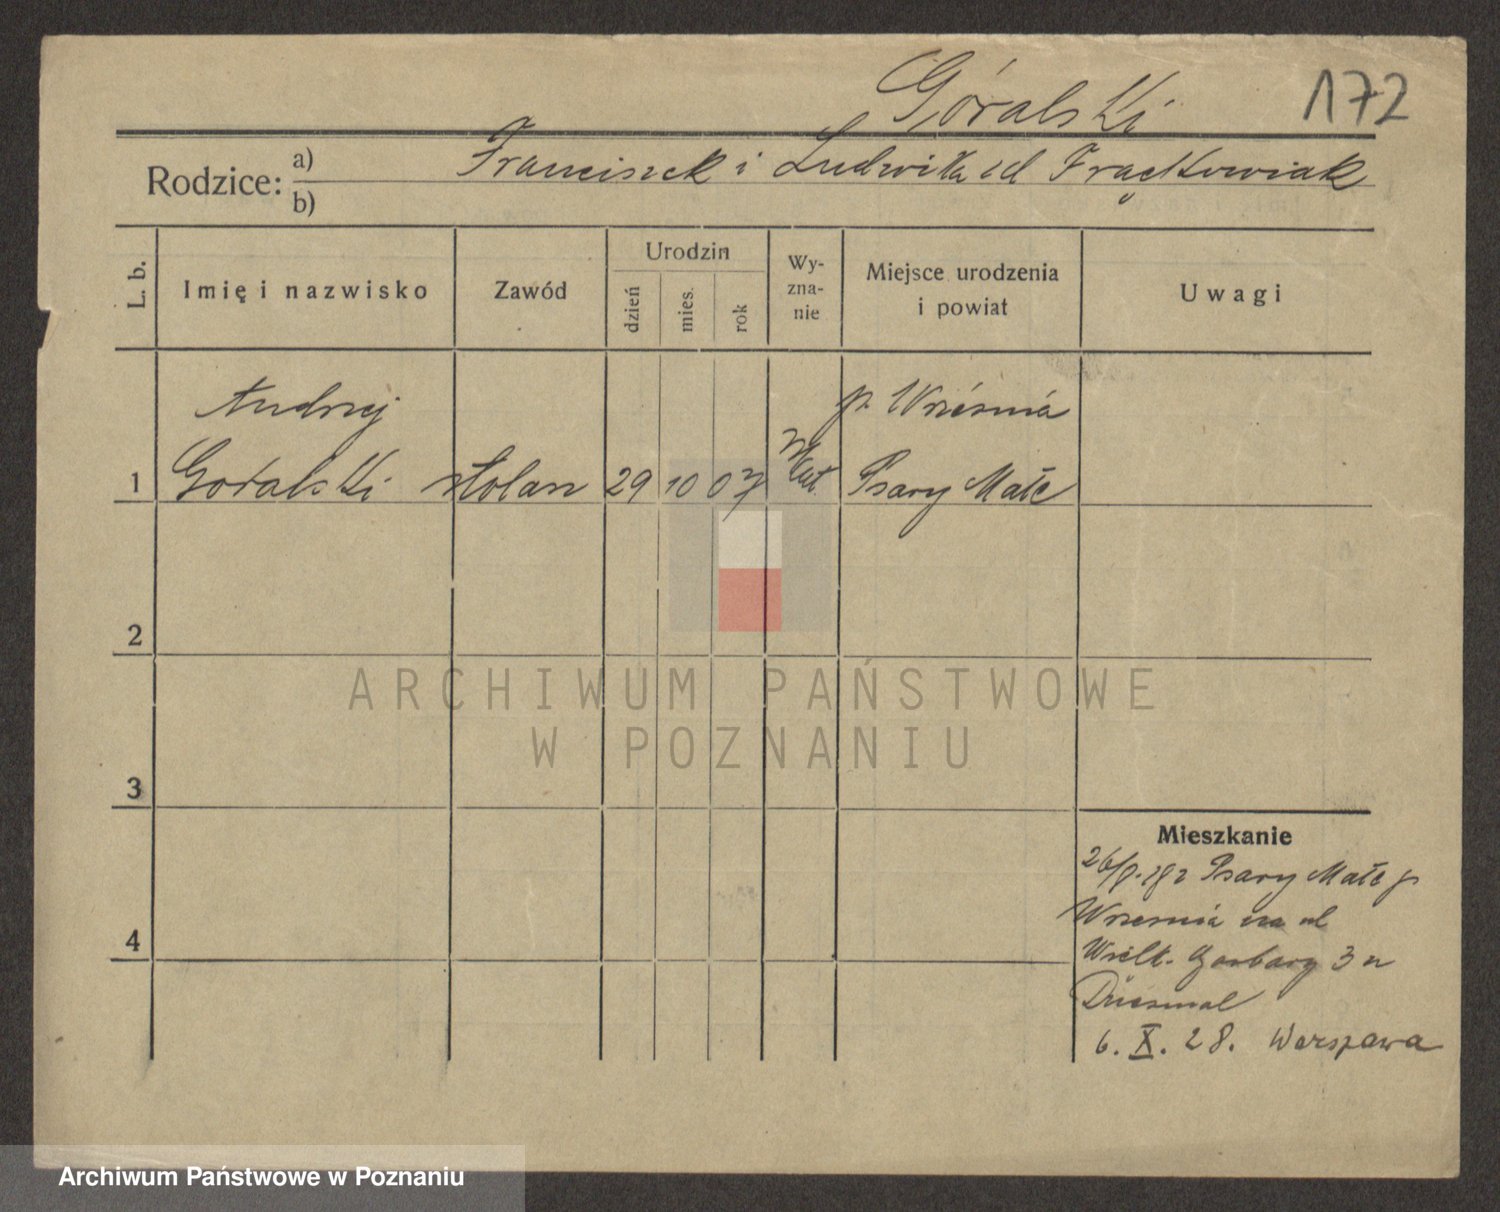 Góralski
172
Rodzice: a) Franciszek i Ludwika zd Frąckowiak
b)
L. b.
Imię i nazwisko
Zawód
Urodzin
dzień
mies.
rok
Wy-
zna-
nie
Miejsce urodzenia
i powiat
Uwagi
Andrzej
p. Września
1 Goralski stolarz 29 10 07 kat Psary Małe
2
3
4
ARCHIWUM PAŃSTWOWE
W POZNANIU
Mieszkanie
Psary Małe p
Września na ul
Wielk. Garbary 3 u
6. X. 28. Warszawa
Archiwum Państwowe w Poznaniu